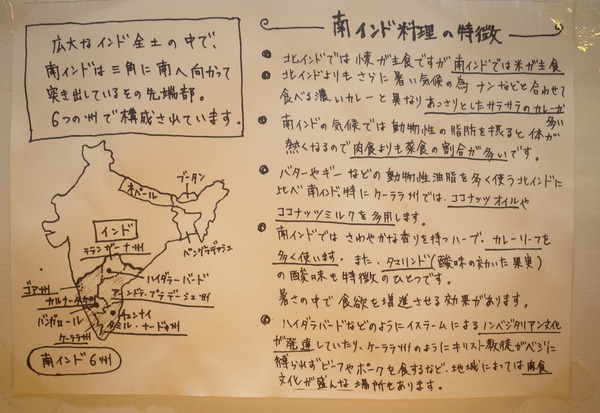 広大なインド全土の中で、
南インドは三角に南へ向かって
突き出しているその先端部。
6つの州で構成されています。
ネパール
ブータン
インド
バングラデッシュ
テランガーナ州
ハイダラーバード
ゴア州
アーンドラ・プラデーシュ州
カルナータカ州
チェンナイ
バンガロール
タミル・ナードゥ州
ケーララ州
南インド6州
南インド料理の特徴
北インドでは 麦が主食ですが 南インドでは米が主食
北インドよりもさらに暑い気候の為 ナンなどと合わせて
食べる濃いカレーと異なり あっさりとしたサラサラのカレーが
多い
南インドの気候では動物性の脂肪を摂ると体が
熱くなるので肉食よりも菜食の割合が多いです。
バターやギーなどの動物性油脂を多く使う北インドに
比べ南インド特にケーララ州では、ココナッツオイルや
ココナッツミルクを多用します。
南インドではさわやかな香りを持つハーブ・カレーリーフを
多く使います。また、タマリンド(酸味の効いた果実)
の酸味も特徴のひとつです。
暑さの中で食欲を増進させる効果があります。
ハイダラバードなどのようにイスラームによるノンベジタリアン文化
が発達していたり、ケーララ州のようにキリスト教徒がベジに
縛られずビーフやポークを食するなど、地域によっては肉食
文化が盛んな場所もあります。